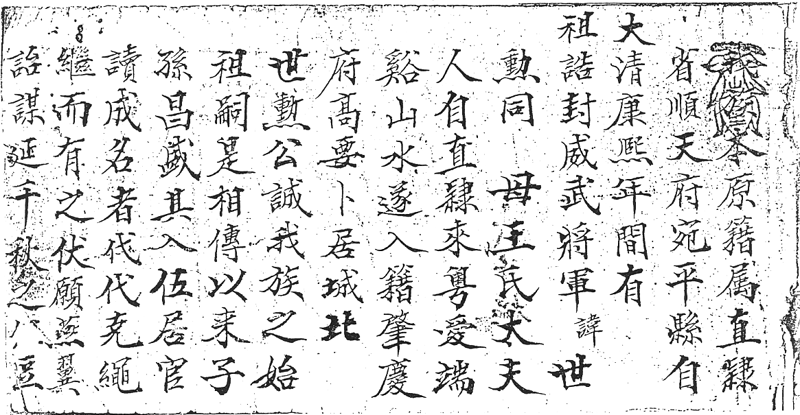 本原籍属直隸
省順天府宛平縣自
大清康熙年間有
祖誥封威武將軍諱世
勲同 母王氏太夫
人自直隸來粤愛端
谿山水遂入籍肇慶
府髙要卜居城北
世勲公誠我族之始
祖嗣是相傳以来子
孫昌盛其入伍居官
讀成名者代代克繩
繼而有之伏願燕翼
詒謀延千秋之